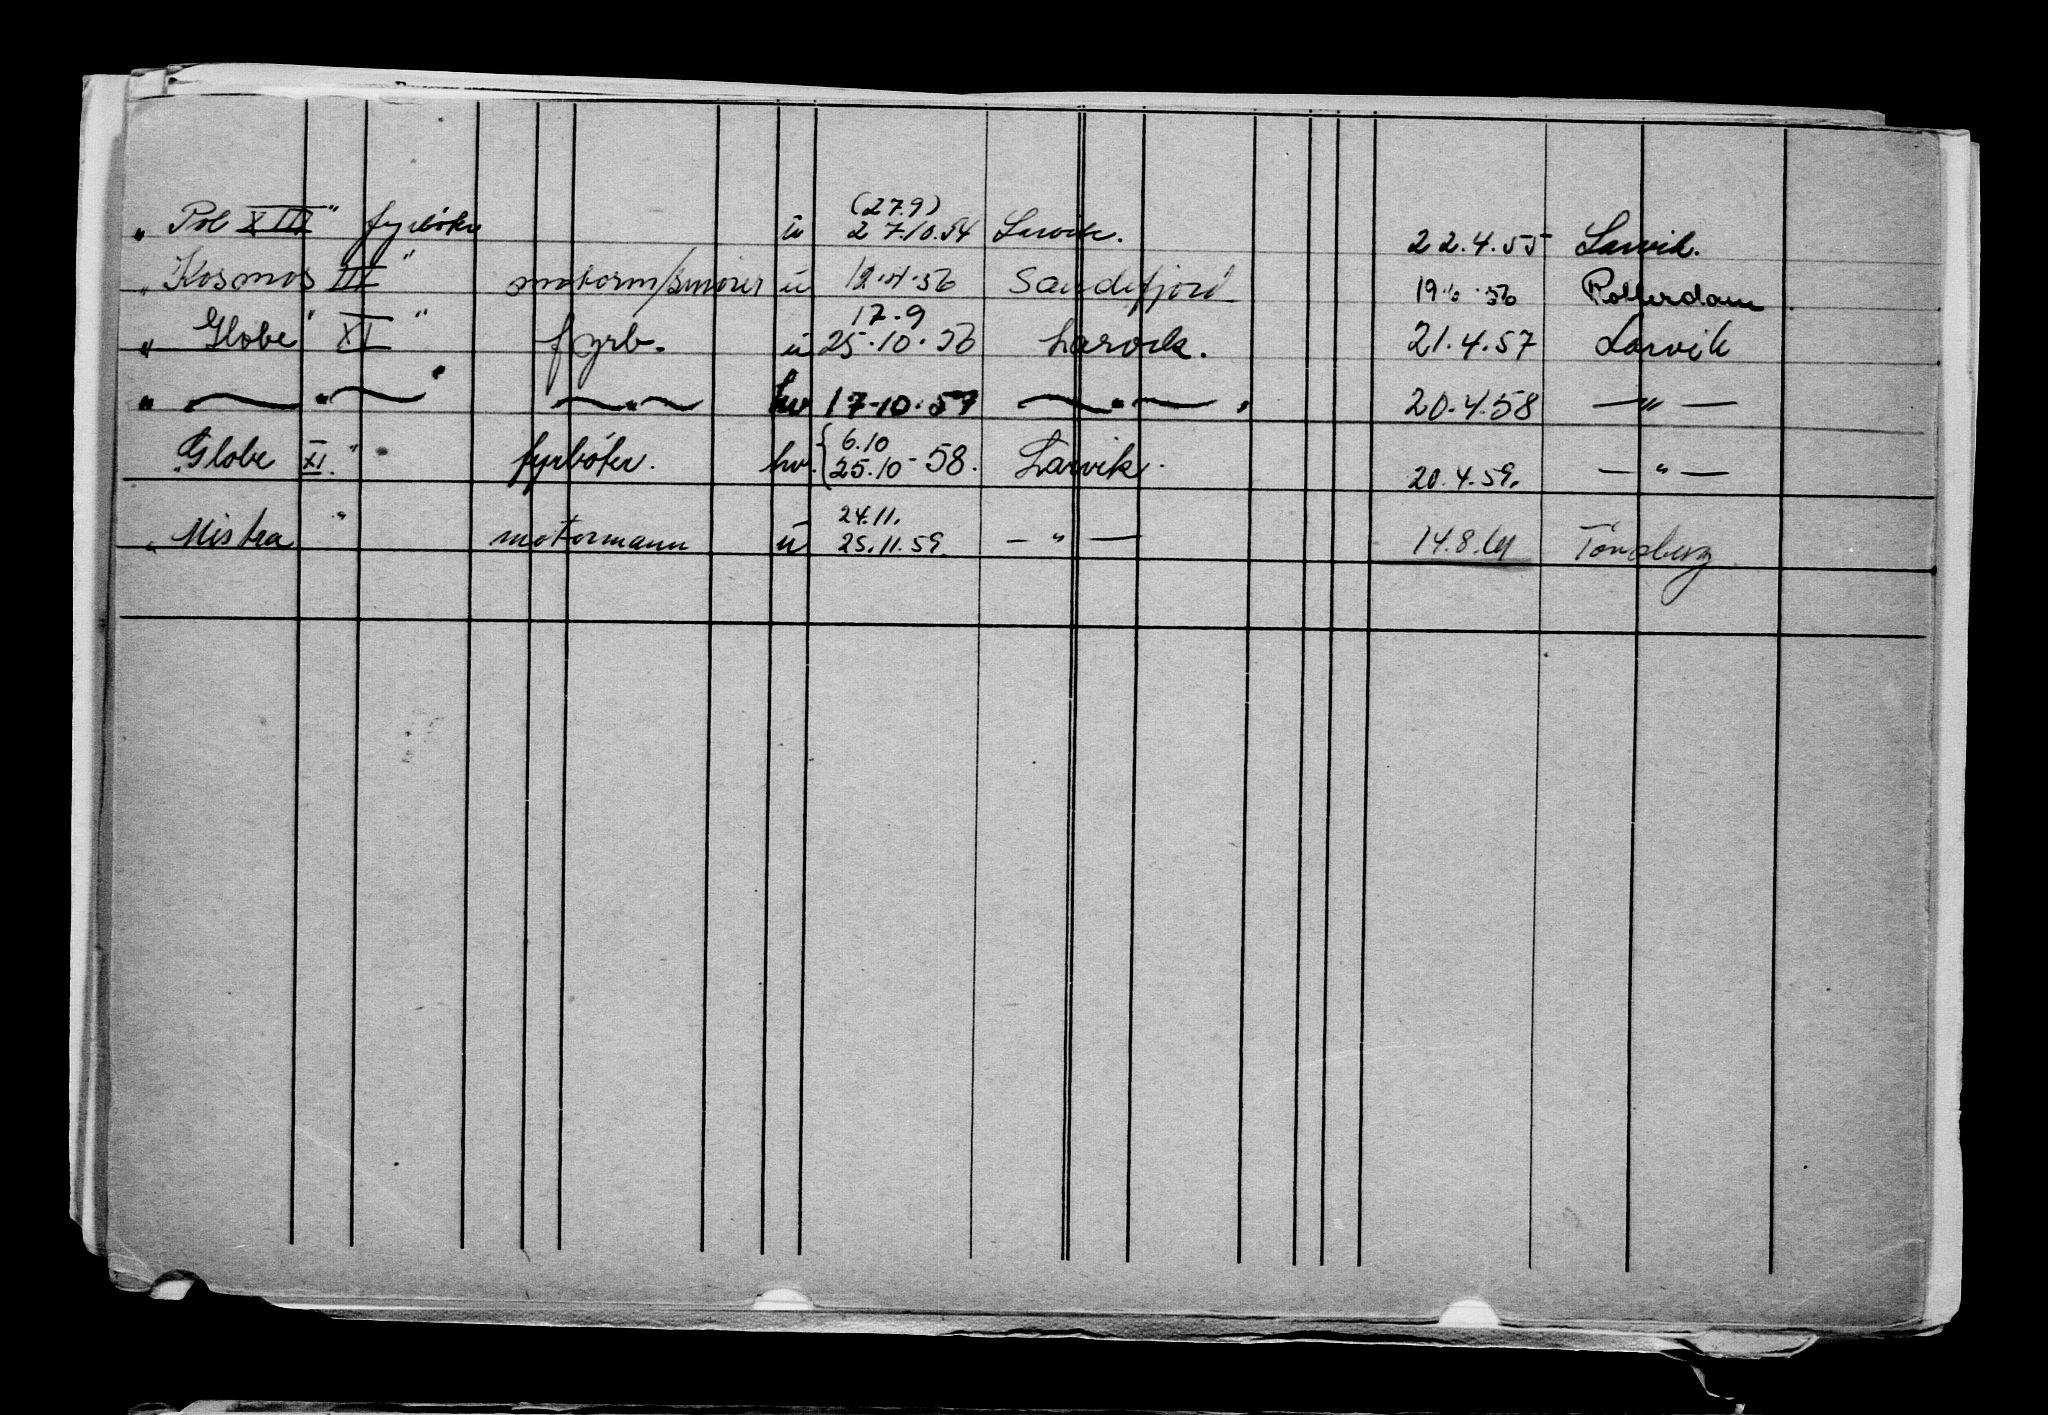 (27.9)
„ Pol XIII" fyrböter u 27.10.54 Larvik. 22.4.55 Larvik.
„ Kosmos III" motorm/smører u 12.4.56 Sandefjord 56 Rotterdam.
17.9
„ Globe XI" fyrb. u 25.10.56 Larvik. 21.4.57 Larvik
„ — " — " — " — hv 17.10.57 — " — . 20.4.58 — " —
6.10
„ Globe XI." fyrböter. hv. { 25.10-58. Larvik. 20.4.59. — " —
24.11.
„ Mistra " motormann u 25.11.59. — " — 14.8.61 Tönsberg